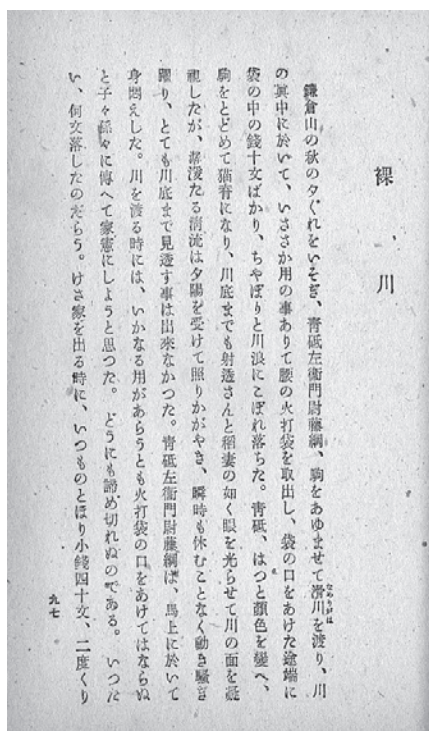 裸川
鎌倉山の秋の夕ぐれをいそぎ、青砥左衞門尉藤綱、駒をあゆませて滑川を渡り、川
なめりがは
の眞中に於いて、いささか用の事ありて腰の火打袋を取出し、袋の口をあけた途端に
袋の中の錢十文ばかり、ちやぼりと川浪にこぼれ落ちた。青砥、はつと顏色を變へ、
駒をとどめて猫脊になり、川底までも射透さんと稻妻の如く眼を光らせて川の面を凝
視したが、潺湲たる淸流は夕陽を受けて照りかがやき、瞬時も休むことなく動き騷ぎ
躍り、とても川底まで見透す事は出來なかつた。青砥左衞門尉藤綱は、馬上に於いて
身悶えした。川を渡る時には、いかなる用があらうとも火打袋の口をあけてはならぬ
と子々孫々に傳へて家憲にしようと思つた。どうにも諦め切れぬのである。いつた
い、何文落したのだらう。けさ家を出る時に、いつものとほり小錢四十文、二度くり
九七